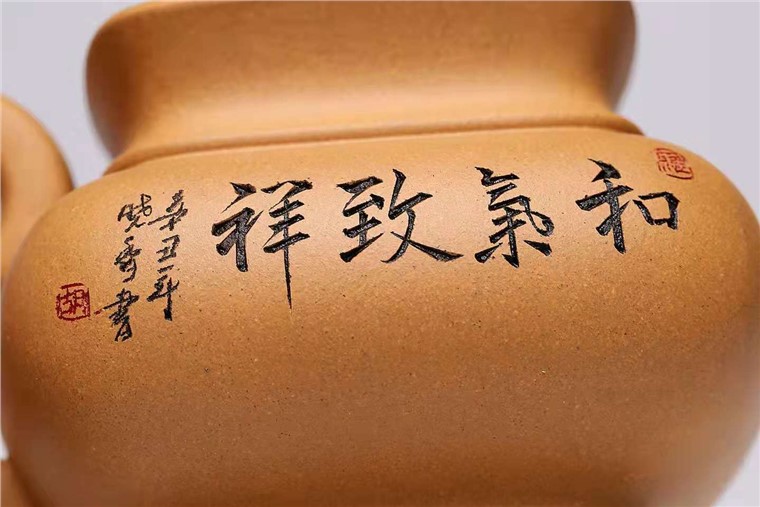 和氣致祥
辛丑年
曉秀書
胡